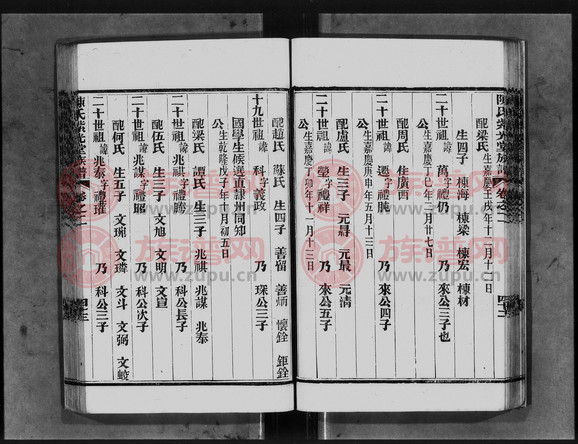 配梁氏 生嘉慶壬戌年十二月十二日
生四子 棟海 棟梁 棟宏 棟材
二十世祖諱萬字禮仍 乃 來公三子也
公生嘉慶丁巳年三月廿七日
配周氏 住廣西
二十世祖諱 字禮 乃 來公四子
公生嘉慶庚申年五月十三日
配盧氏 生三子 元 元最 元清
二十世祖諱瑩字禮祥 乃 來公五子
公生嘉慶丁卯年十一月十三日
陳氏 堂族譜 卷之二 四十二
族谱网
www.zupu.cn
配趙氏 蘇氏 生四子 善留 善炳 懷銓 鉅銓
十九世祖諱科字義政 乃 琛公三子
國學生候選直隸州同知
公生乾隆戊子年 月初五日
配梁氏 譚氏 生三子 兆祺 兆謀 兆泰
二十世祖諱兆祺字禮 乃 科公長子
配伍氏 生三子 文旭 文明 文宣
二十世祖諱兆謀字禮 乃 科公次子
配何氏 生五子 文琬 文璘 文斗 文弼 文峻
二十世祖諱兆泰字禮 乃 科公三子
陳氏 堂族譜 卷之二 四十三
族谱网
www.zupu.cn